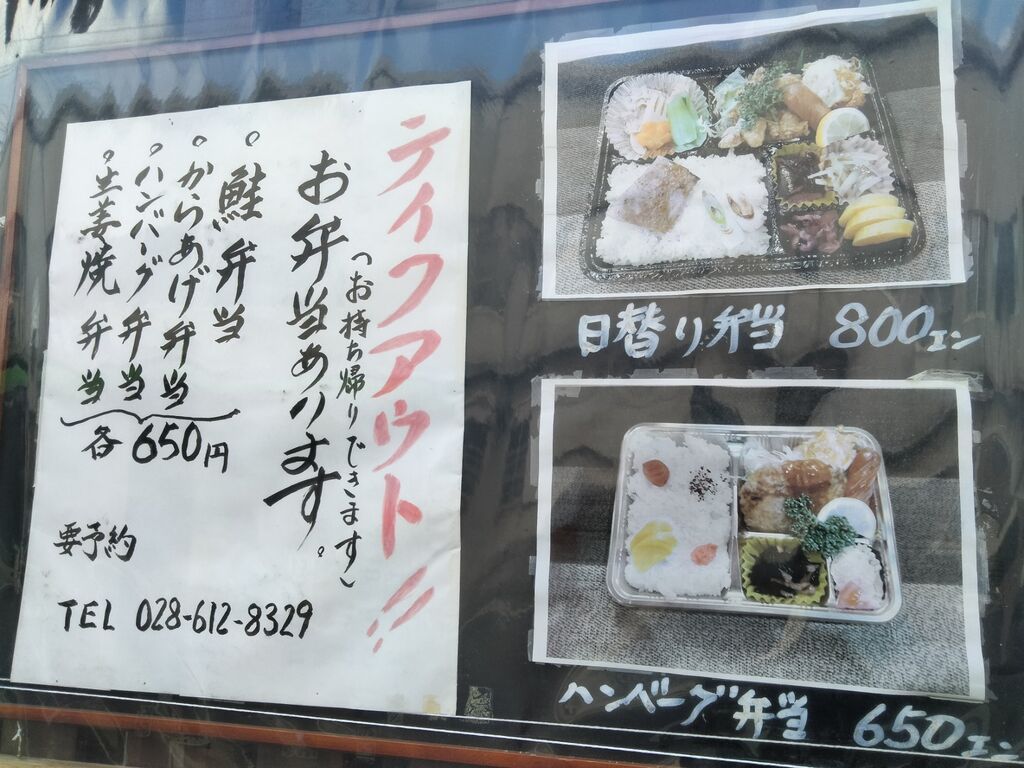 テイクアウト!!
(お持ち帰りできます)
お弁当あります。
。鮭弁当
。からあげ弁当
。ハンバーグ弁当
。生姜焼弁当
各650円
要予約
TEL 028-612-8329
日替り弁当 800エン
ハンバーグ弁当 650エン